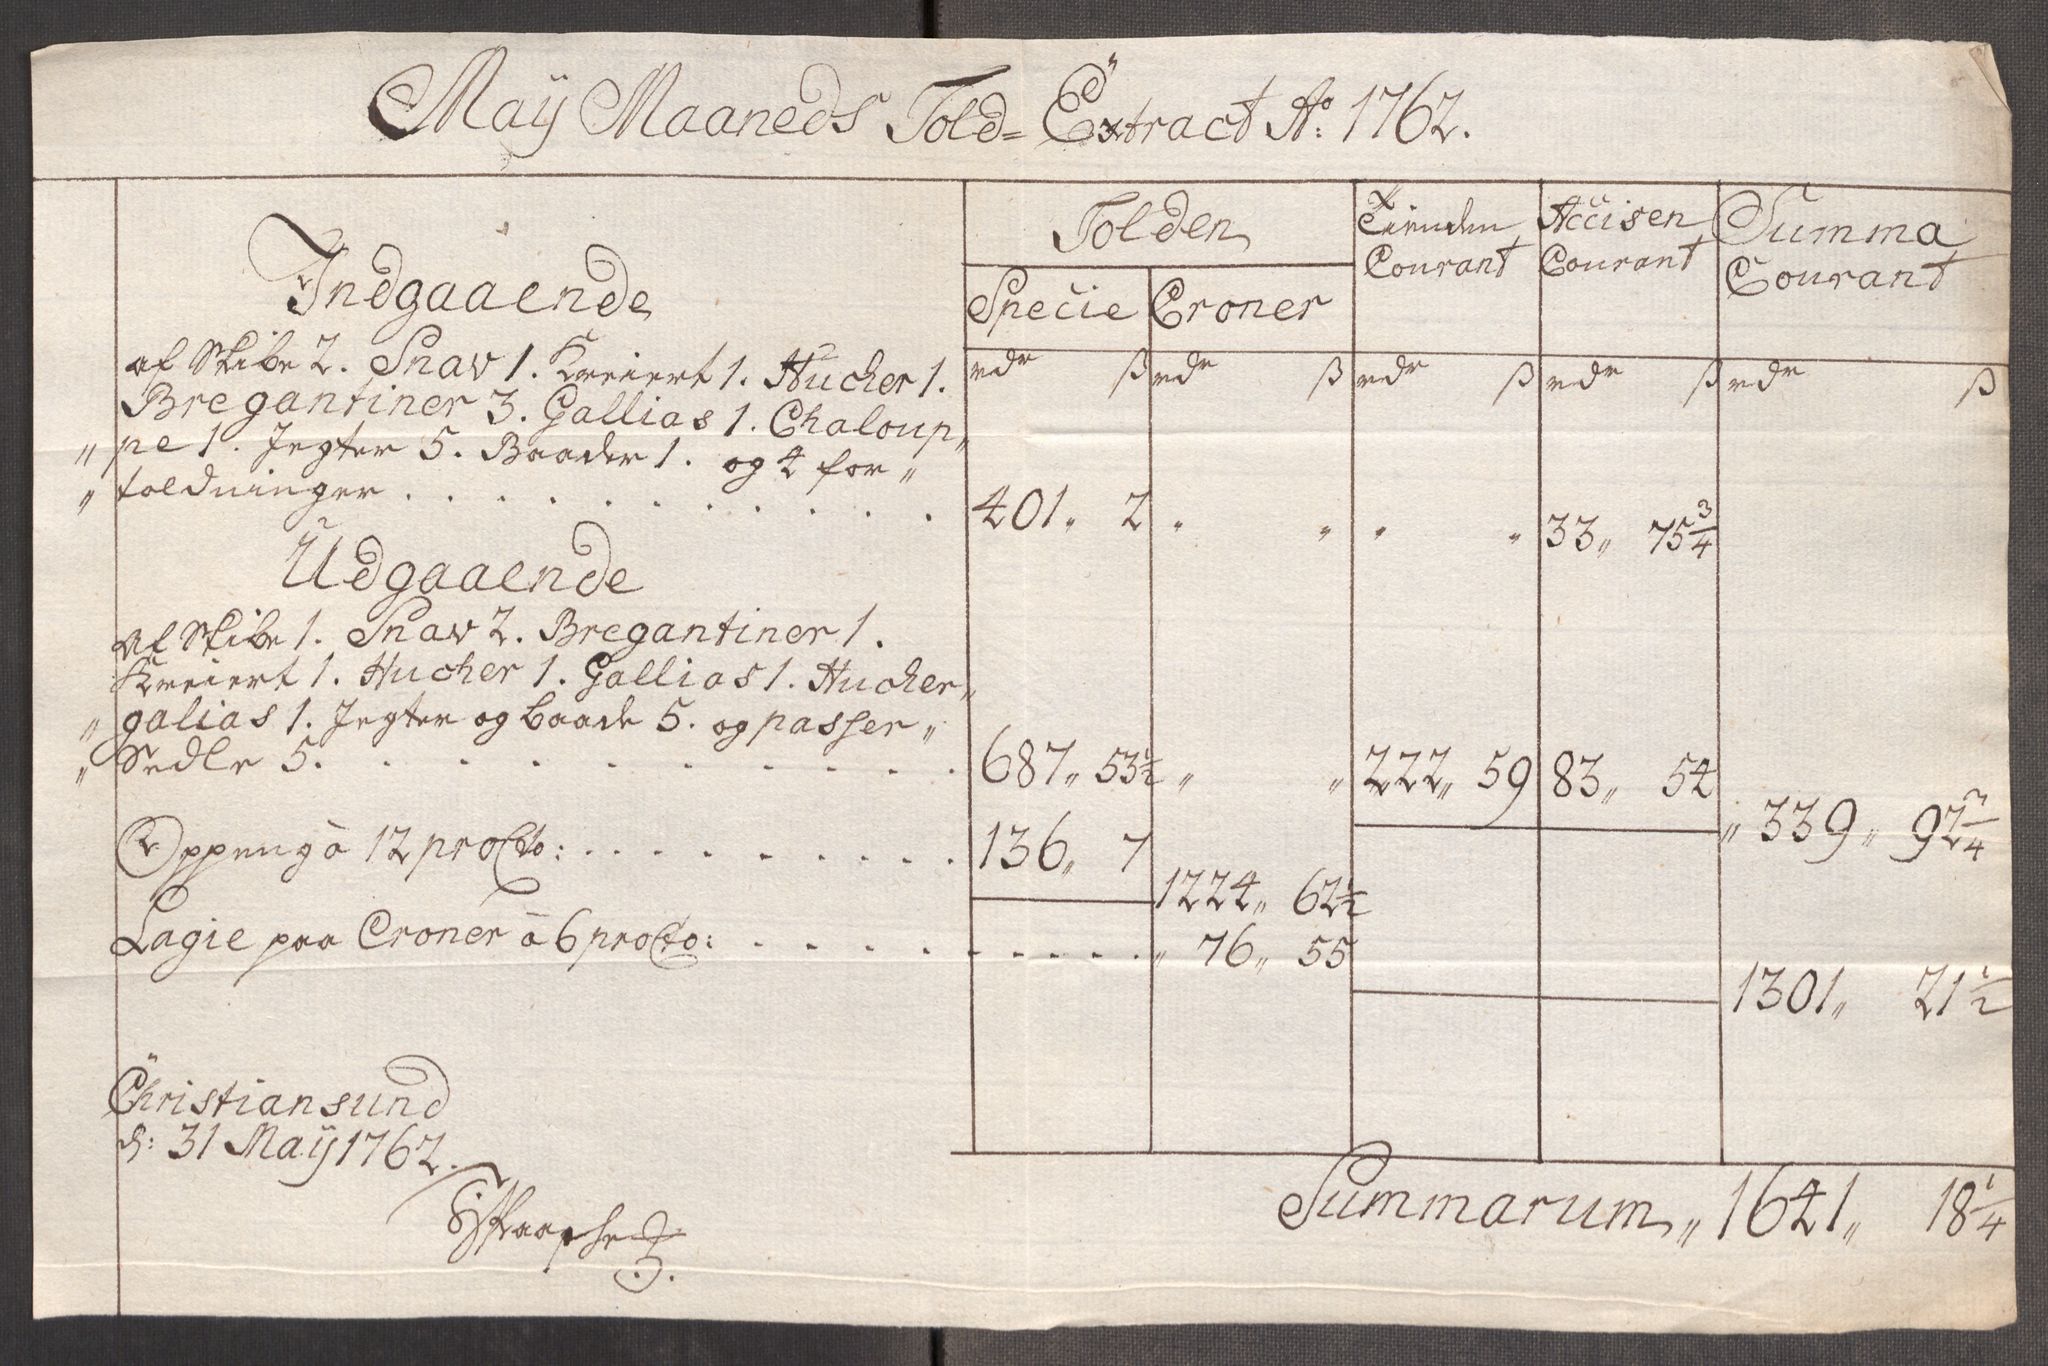 Maij Maaneds Told= Extract Ao: 1762.
Tolden
Tienden Courant
Accisen Courant
Summa Courant
Specie
Croner
rdr ß rdr ß rdr ß rdr ß rdr ß
Indgaaende
af Skibe 2. Snav 1. Kreiert 1. Hucher 1.
Bregantiner 3. Gallias 1. Chaloup„
„pe 1. Jegter 5. Baader 1. og 4 for„
„toldninger . . . . . . . . . . 401„ 2 „ „ „ „ 33„ 75 3/4
Udgaaende
af Skibe 1. Snav 2. Bregantiner 1.
Kreiert 1. Hucher 1. Gallias 1. Hucher„
„galias 1. Jegter og baade 5. og passer„
„Sedle 5. . . . . . . . . . . 687„ 53½ „ „ 222„ 59 83„ 54
„339„ 92 3/4
Oppeng à 12 pro Cto: . . . . . . . . . 136„ 7
1224„ 62½
Lagie paa Croner à 6 pro Cto: . . . . . . . . . „76„ 55
1301„ 21½
Christiansund
d: 31 Maij 1762.
Summarum„ 1641„ 18 1/4